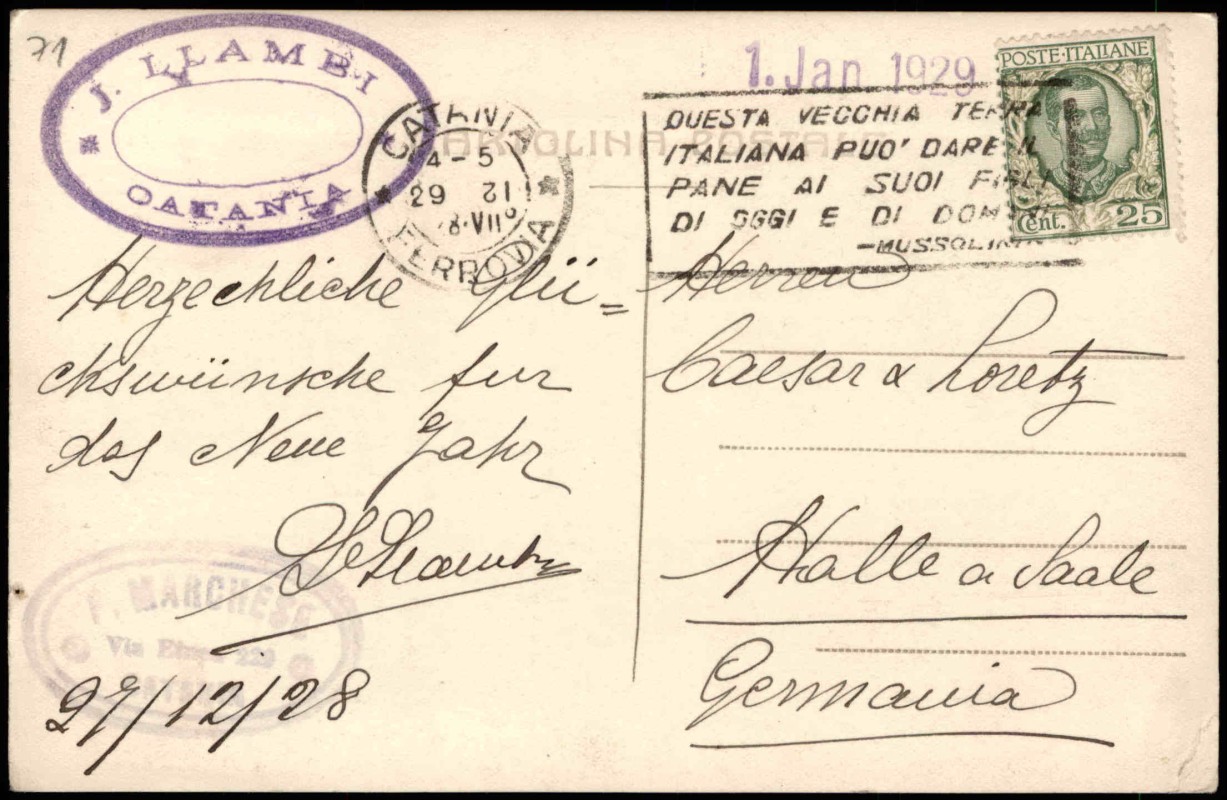 71
J. LLAMBI
CATANIA
CATANIA
4-5
29 21
8·VII
FERROVIA
1. Jan 1929
CARTOLINA POSTALE
QUESTA VECCHIA TERRA
ITALIANA PUO' DARE IL
PANE AI SUOI FIGLI
DI OGGI E DI DOMANI
-MUSSOLINI
POSTE·ITALIANE
Cent. 25
Herzechliche Glü=
ckswünsche fur
das Neue Jahr
27/12/28
F. MARCHESE
Via Etnea 229
CATANIA
Herren
Caesar & Loretz
Halle a Saale
Germania